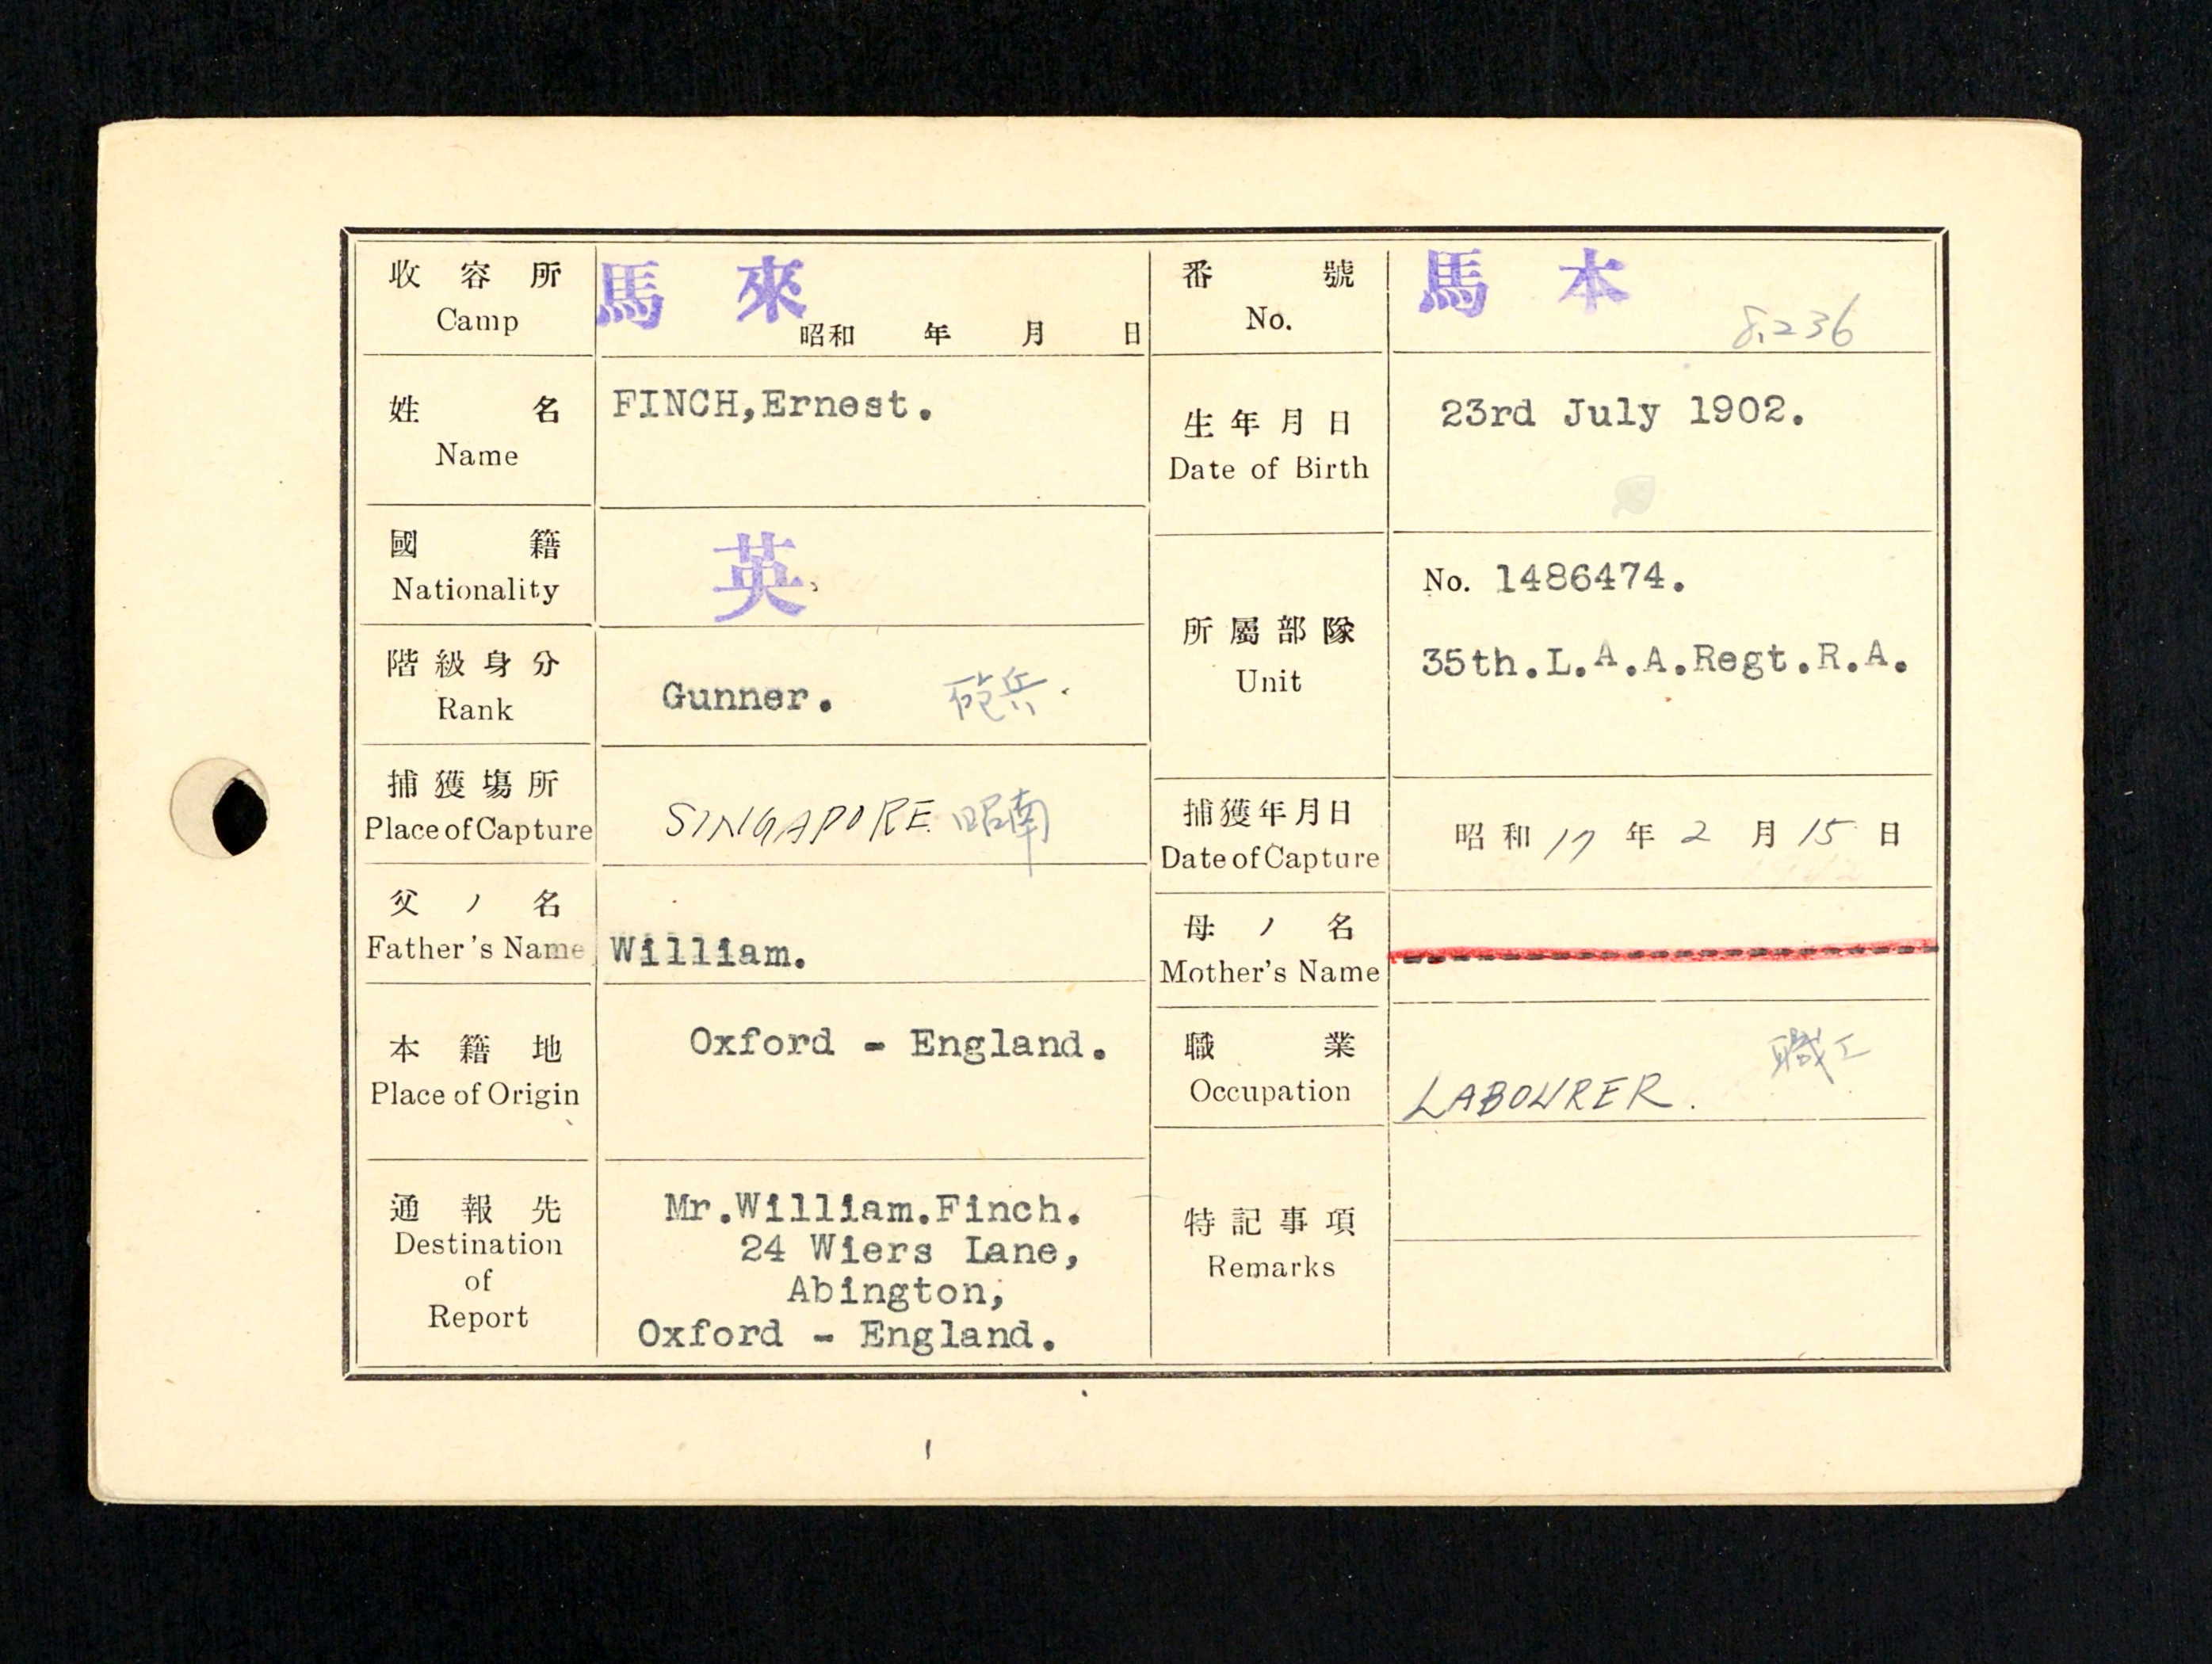 收容所
Camp
馬來
昭和 年 月 日
番號
No.
馬本
8.236
姓名
Name
FINCH,Ernest.
生年月日
Date of Birth
23rd July 1902.
國籍
Nationality
英
階級身分
Rank
Gunner. 砲兵
所屬部隊
Unit
No. 1486474.
35th.L.A.A.Regt.R.A.
捕獲場所
Place of Capture
SINGAPORE. 昭南
捕獲年月日
Date of Capture
昭和 17 年 2 月 15 日
父ノ名
Father's Name
William.
母ノ名
Mother's Name
本籍地
Place of Origin
Oxford - England.
職業
Occupation
LABOURER. 職工
通報先
Destination
of
Report
Mr.William.Finch.
24 Wiers Lane,
Abington,
Oxford - England.
特記事項
Remarks